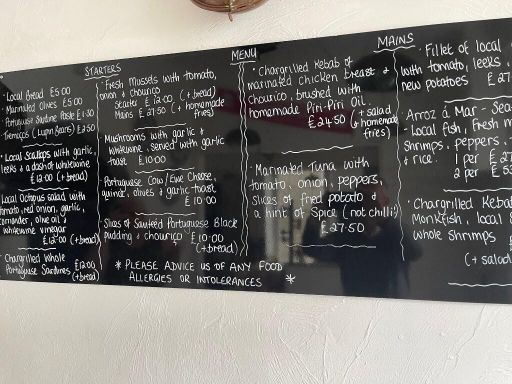 MENU
STARTERS
· Local Bread £5.00
· Marinated Olives £5.00
· Portuguese Sardine Paste £1.30
· Tremoços (Lupin Beans) £2.50
· Local Scallops with garlic,
leeks & a dash of white wine
£12.00 (+bread)
Local Octopus salad with
tomato, red onion, garlic,
coriander, olive oil &
white wine vinegar
£12.00 (+bread)
· Chargrilled Whole £12.00
Portuguese Sardines (+bread)
· Fresh Mussels with tomato,
onion & chourico
Starter £12.00 (+bread)
Mains £21.50 (+homemade
fries)
Mushrooms with garlic &
white wine, served with garlic
toast £10.00
· Portuguese Cow/Ewe Cheese,
quince, olives & garlic toast
£10.00
Slices of Sautéed Portuguese Black
pudding & chourico £10.00
(+bread)
* PLEASE ADVICE US OF ANY FOOD
ALLERGIES OR INTOLERANCES *
MAINS
· Chargrilled Kebab of
marinated chicken breast &
chourico, brushed with
homemade Piri-Piri Oil.
£24.50 (+salad
& homemade
fries)
· Marinated Tuna with
tomato, onion, peppers,
slices of fried potato &
a hint of spice (not chilli)
£27.50
· Fillet of local
with tomato, leeks,
new potatoes £27
Arroz á Mar - Sea
- Local fish, fresh m
shrimps, peppers,
& rice. 1 per £27
2 per £53
· Chargrilled Keba
Monkfish, local S
whole shrimps £
(+ salad